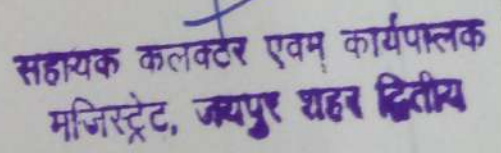 सहायक कलक्टर एवम् कार्यपालक
मजिस्ट्रेट, जयपुर शहर द्वितीय